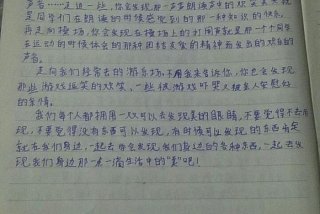 声音……走近一些,你会发现那一声声朗诵声中的欢笑其实就
是同学们在朗诵的时候感受到的那一种知识的快乐。
再走向操场,你会发现在操场上的打闹声就是那一个个同学
在运动的时候体会的那种团结友爱的精神而发出的欢乐的
声音。
走向我们经常去的游乐场,不用我来告诉你,你也会发现
那些游戏玩笑的欢笑,一些被游戏吓哭又被家人安慰好
的亲情。
我们每个人都拥有一双可以去发现美的眼睛,不要觉得不去发
现,不要觉得没有东西可以发现,有时候可以发现的东西肯定
就在我们身边,一起去学会发现我们身边的各种东西,一起去发
现我们身边那一点一滴生活中的"美"吧!